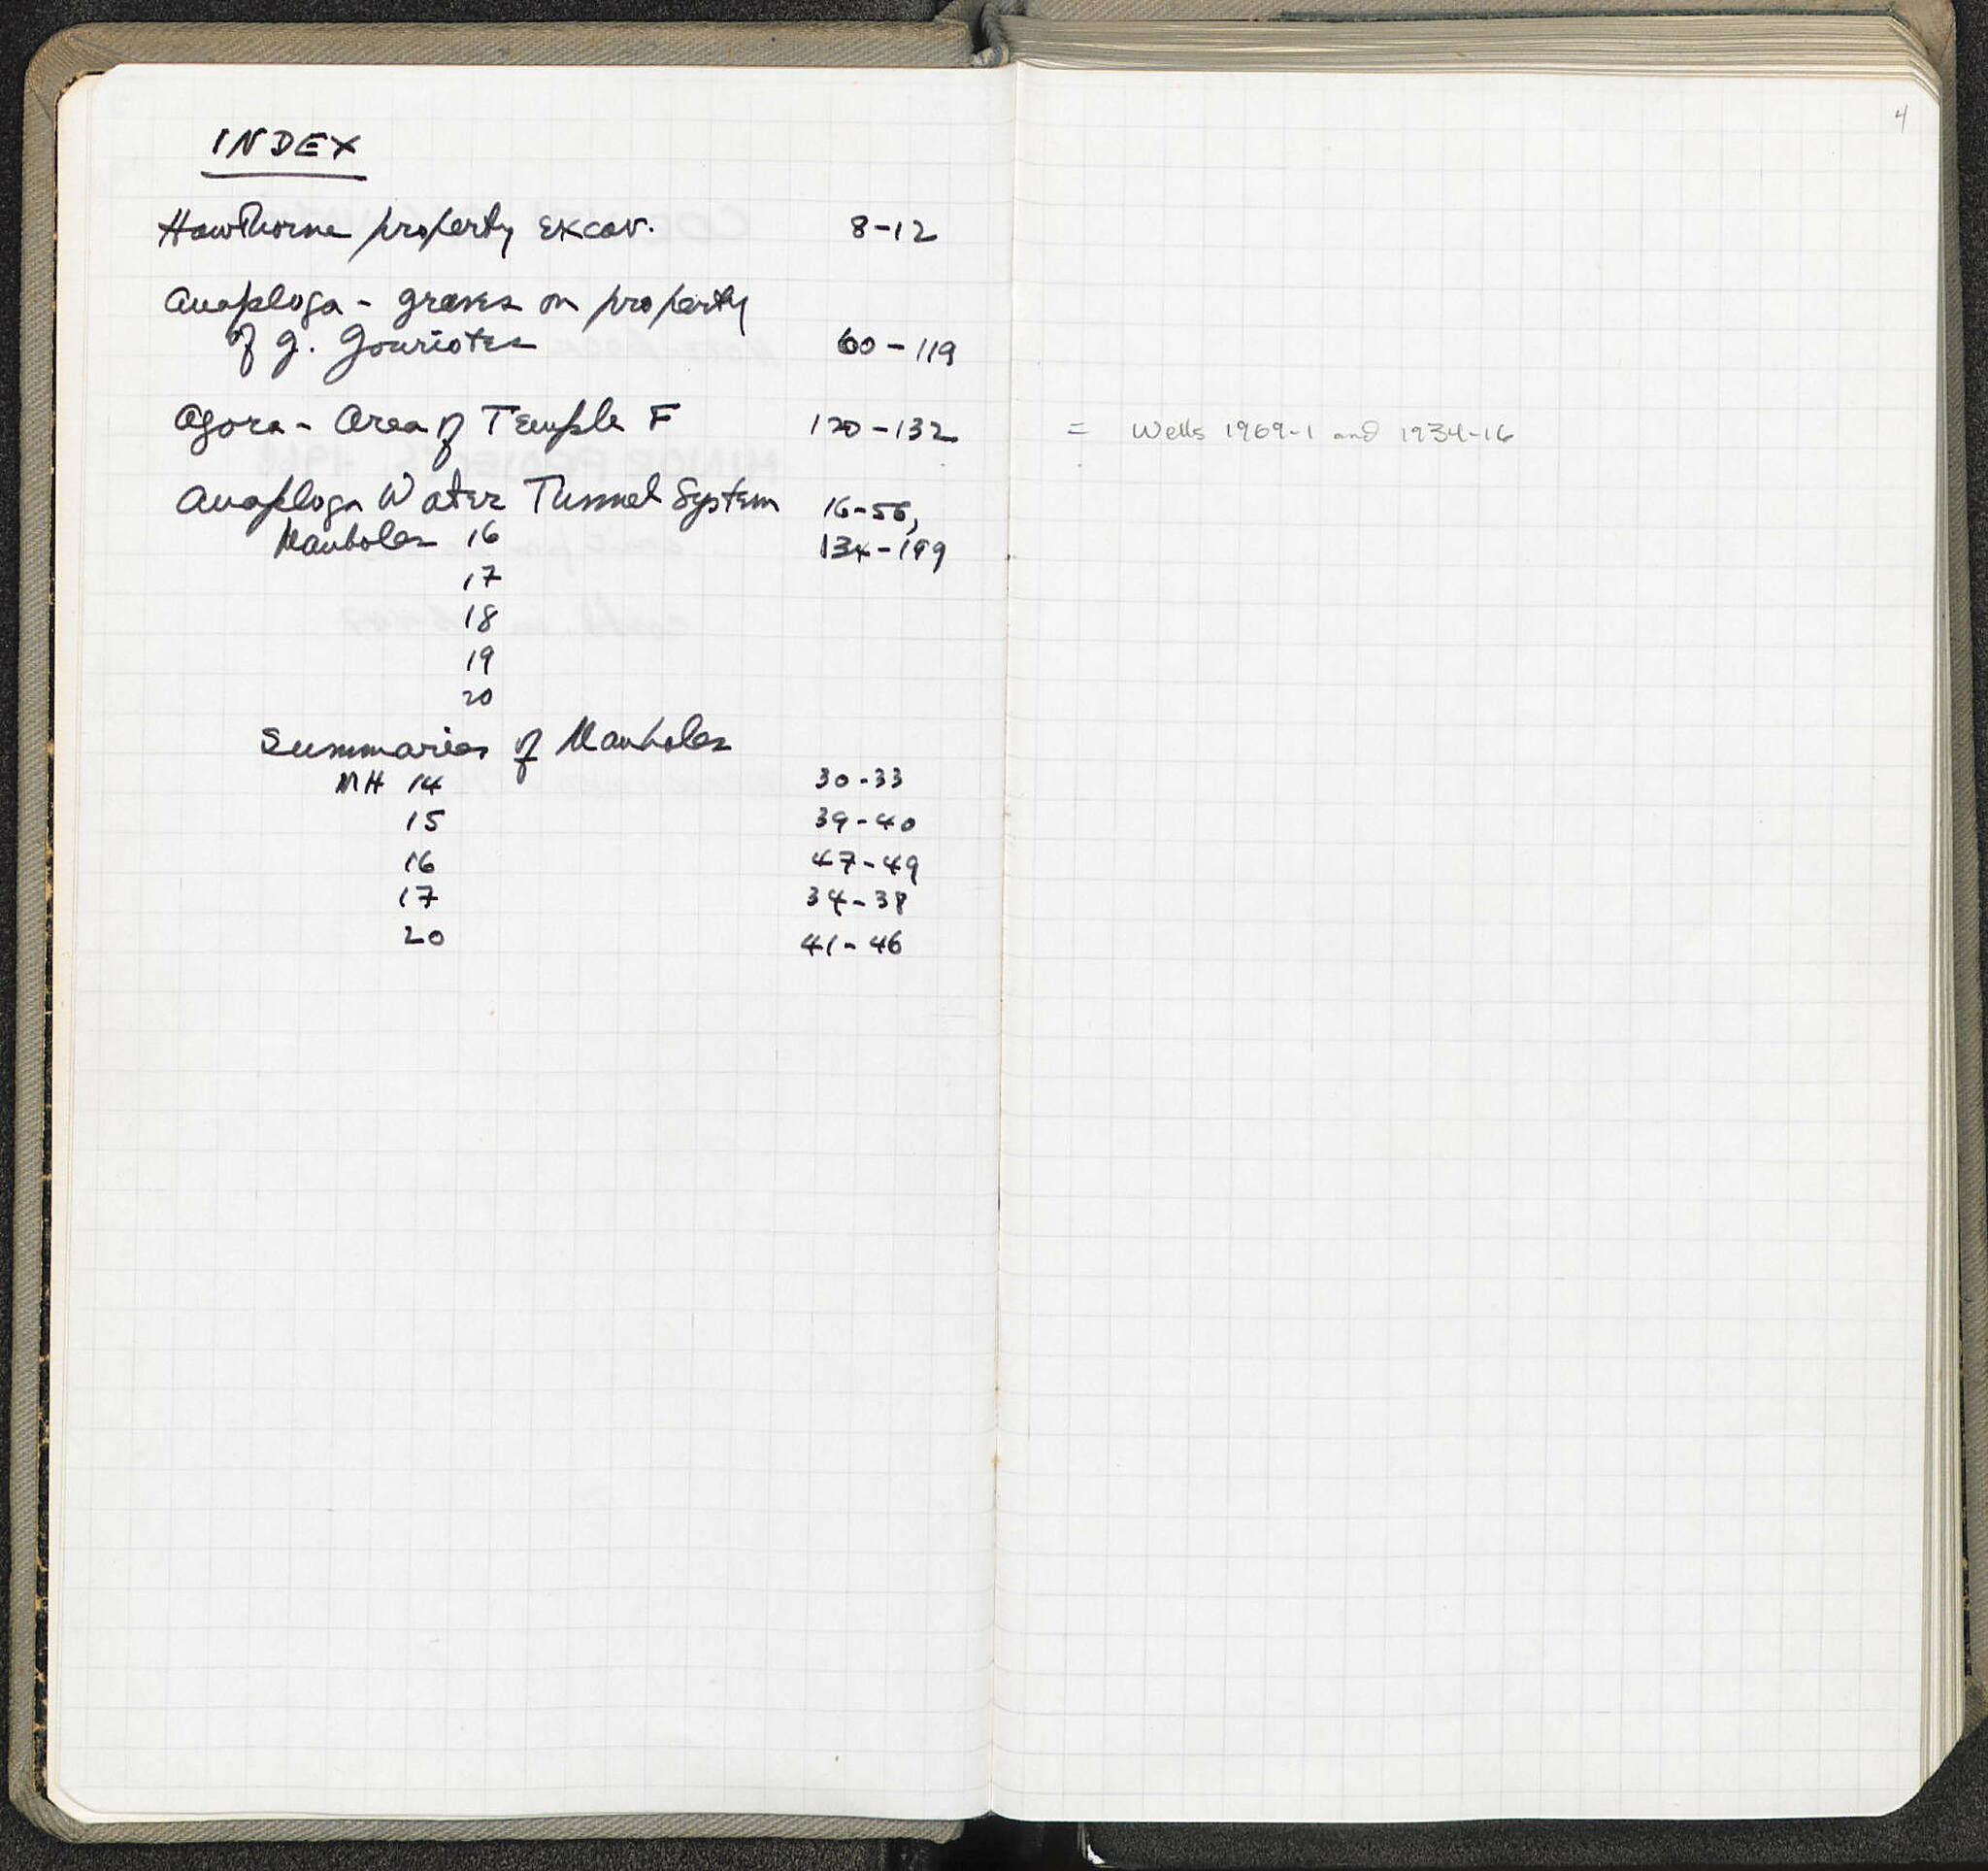 INDEX
Hawthorne property excav. 8-12
Anaploga - graves on property
of G. Gouriotes 60-119
Agora - Area of Temple F 120-132 = Wells 1969-1 and 1934-16
Anaploga Water Tunnel System 16-56,
Manholes 16 134-199
17
18
19
20
Summaries of Manholes
MH 14 30-33
15 39-40
16 47-49
17 34-38
20 41-46
4